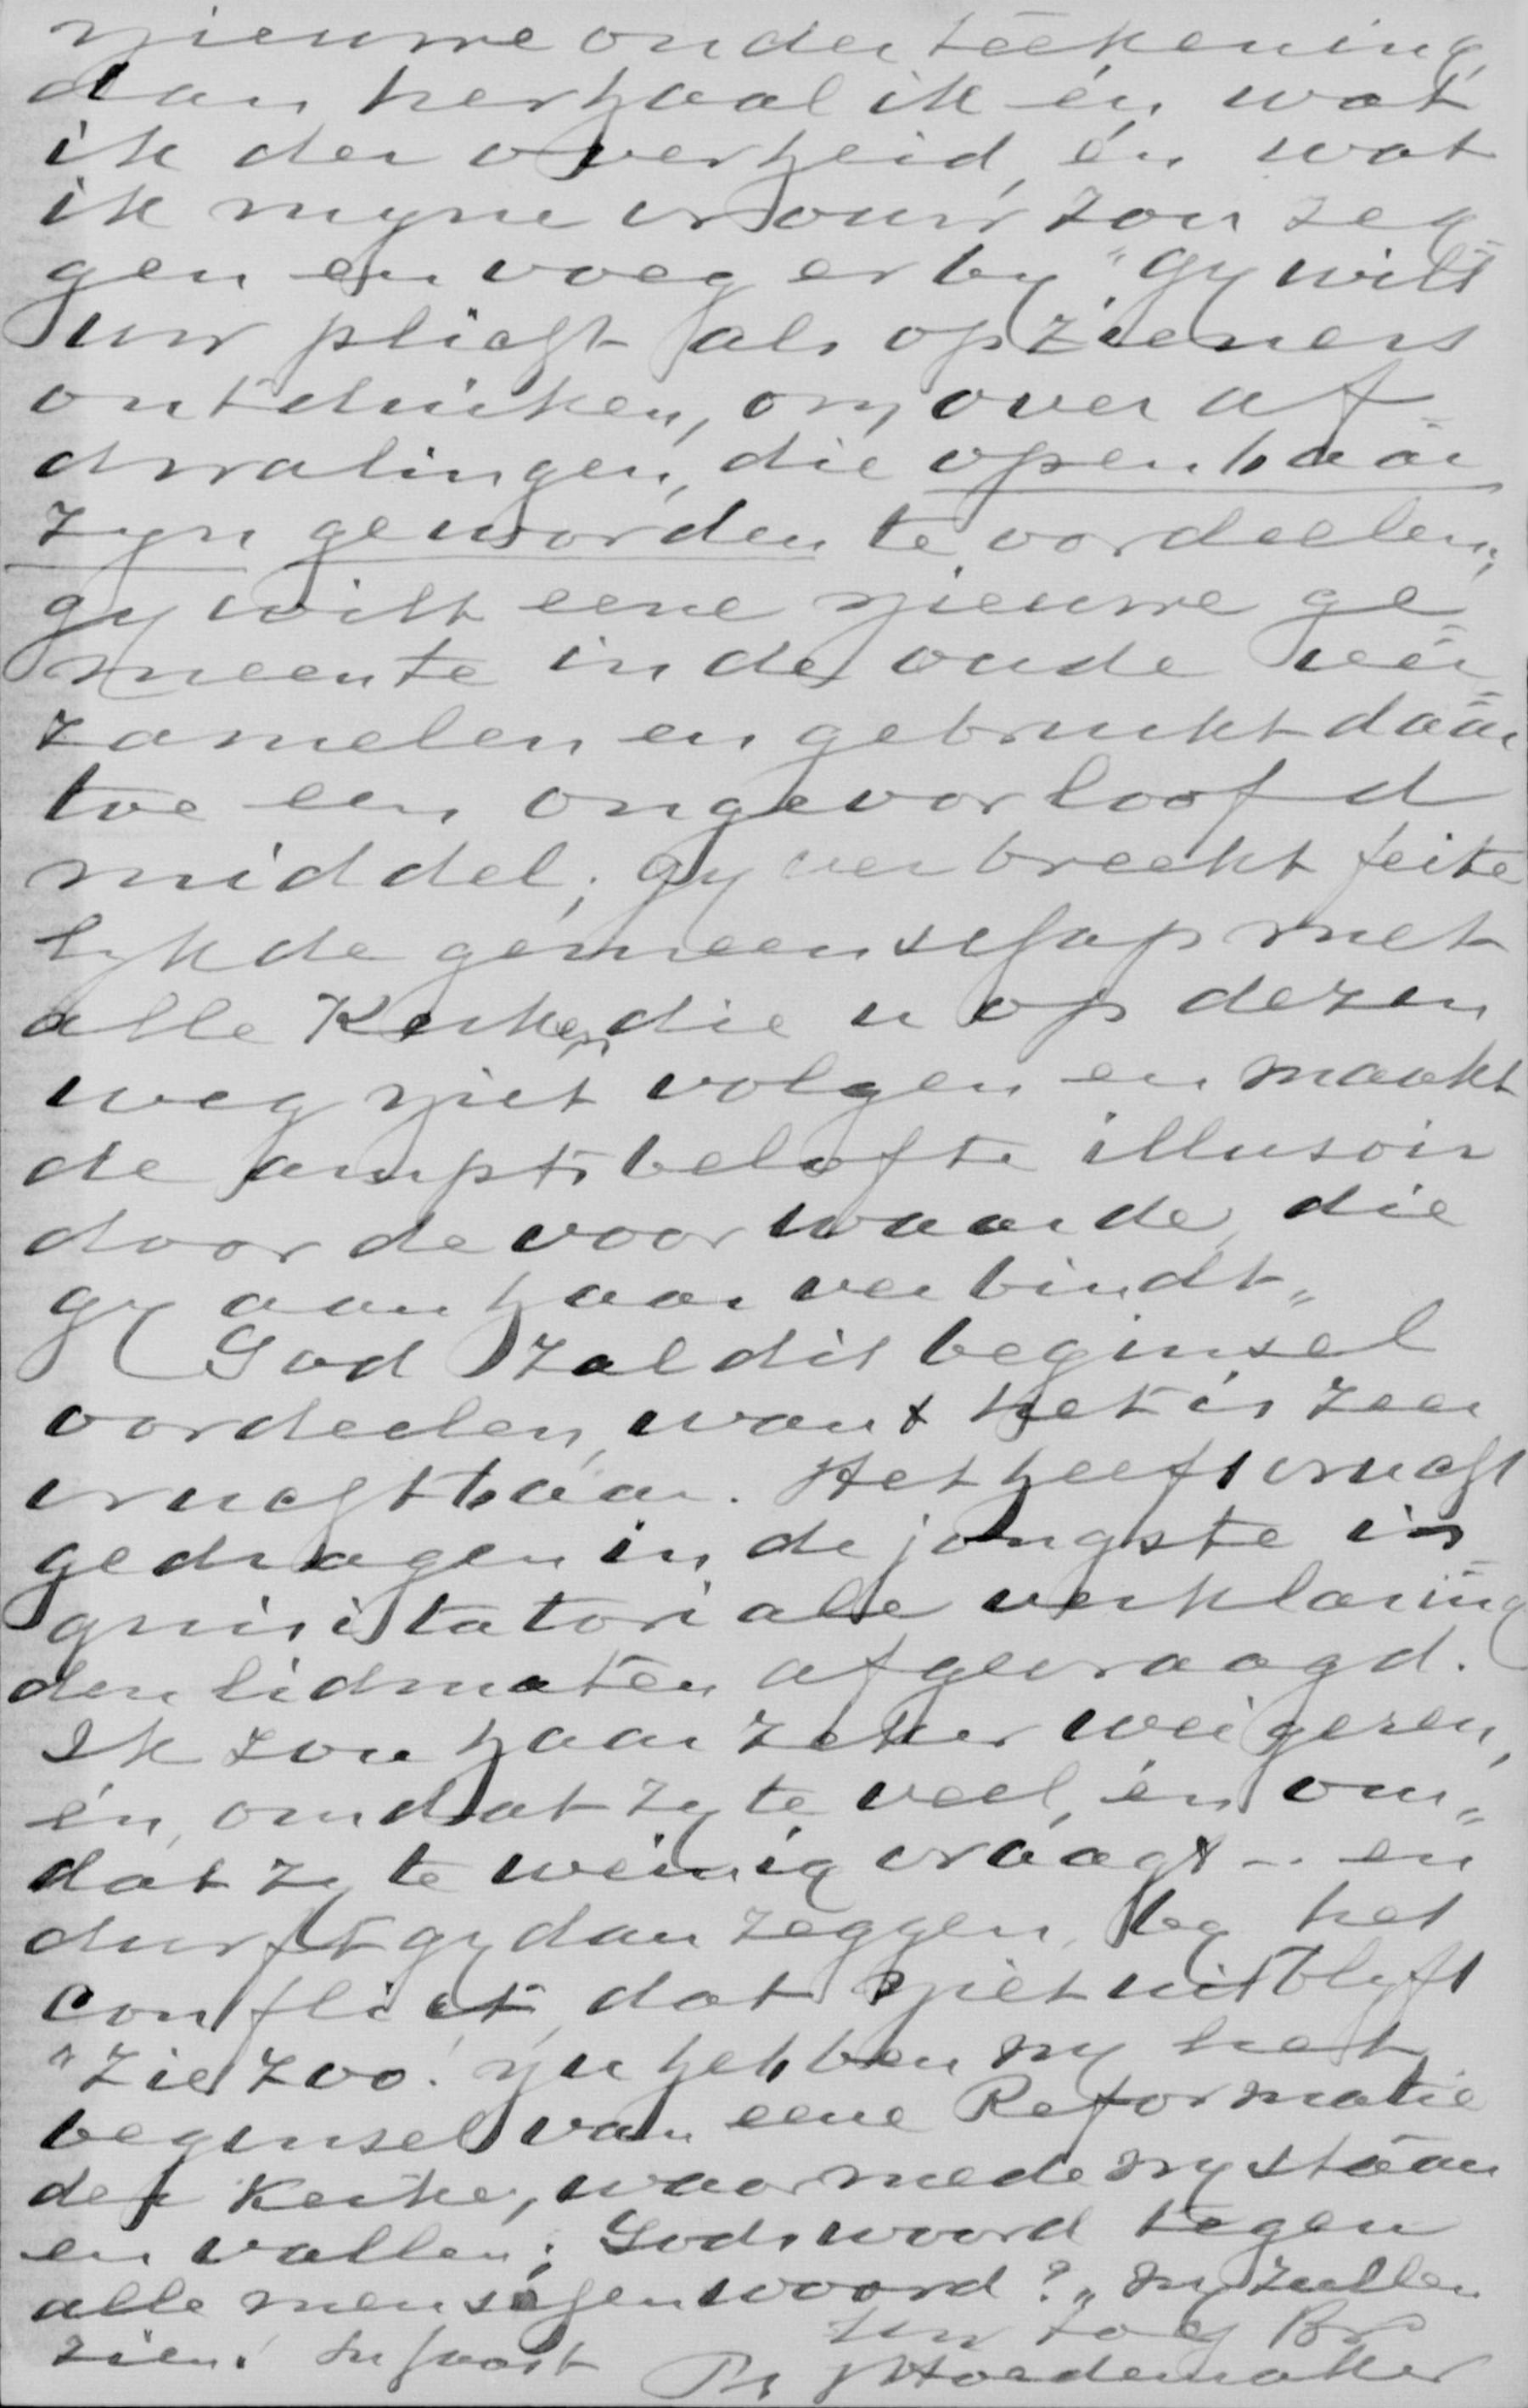 nieuwe onderteekening,
dan herhaal ik én wat
ik der overheid, én wat
ik myne vrouw zou zeg=
gen en voeg er by "Gy wilt
uw plicht als opzieners
ontduiken, om over af=
dwalingen, die openbaar
zyn geworden te oordeelen;
gy wilt eene nieuwe ge=
meente in de oude ver=
zamelen en gebruikt daar
toe een ongeoorloofd
middel; gy verbreekt feite
lyk de gemeenschap met
alle Kerken die u op dezen
weg niet volgen en maakt
de amptsbelofte illusoir
door de voorwaarde, die
gy aan haar verbindt"
God zal dit beginsel
oordeelen, want het is zeer
vruchtbaar. Het heeft vrucht
gedragen in de jongste in=
quisitatoriale verklaring
den lidmaten afgevraagd.
Ik zou haar zeker weigeren,
én, omdat zy te veel, én om=
dat zy te weinig vraagt - en
durft gy dan zeggen, by het
conflict, dat niet uitblyft
"Ziezoo! nu hebben wy het
beginsel van eene Reformatie
der Kerke, waarmede wy staan
en vallen; Gods woord tegen
alle menschenwoord?" Wy zullen
zien!
Uw Br
Ph J Hoedemaker